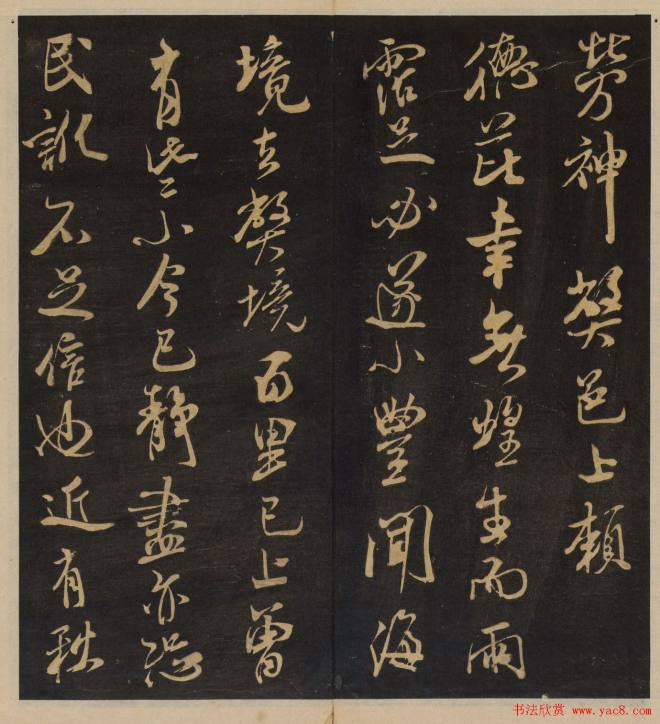 勞神獘邑上賴
德芘幸無蝗生而雨
霑足必遂小豐聞海
境去獘境百里已上曾
有些小今已靜盡亦恐
民訛不足信也近有秩
书法欣赏 www.yac8.com